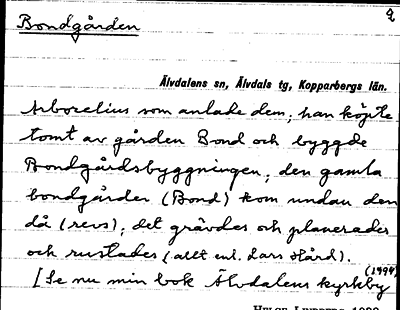 2
Bondgården
Älvdalens sn, Älvdals tg, Kopparbergs län.
Arborelius som anlade dem; han köpte
tomt av gården Bond och byggde
Bondgårdsbyggningen; den gamla
bondgården (Bond) kom undan den
då (revs); det grävdes och planerades
och rustades (allt enl. Lars Hård).
(1999)
[Se nu min bok Älvdalens kyrkby